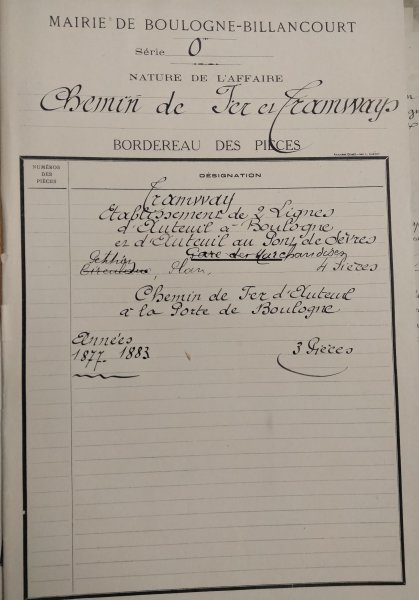 MAIRIE DE BOULOGNE-BILLANCOURT
Série O
NATURE DE L'AFFAIRE
Chemin de Fer et Tramways
BORDEREAU DES PIÈCES
NUMÉROS
DES
PIÈCES
DÉSIGNATION
Tramway
Etablissement de 2 Lignes
d'Auteuil à Boulogne
et d'Auteuil au Pont de Sèvres
Pétition Gare des Marchandises
Plan, 4 Pièces
Chemin de Fer d'Auteuil
à la Porte de Boulogne
Années
1877-1883 3 Pièces